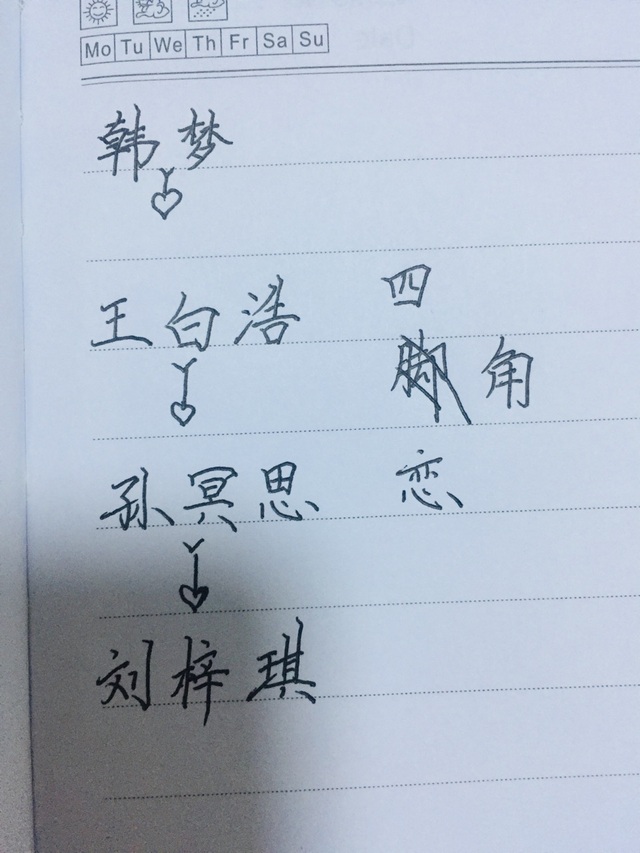 Mo Tu We Th Fr Sa Su
韩梦
王白浩
四
脚角
孙冥思
恋
刘梓琪